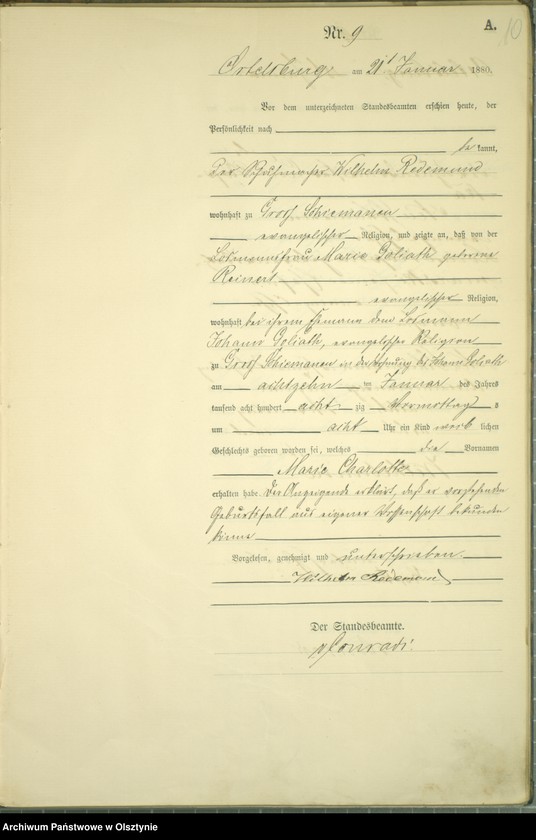 A.
10
Nr. 9
Ortelsburg am 21ᵗ Januar 1880.
Vor dem unterzeichneten Standesbeamten erschien heute, der
Persönlichkeit nach
be kannt,
Der Schuhmacher Wilhelm Redemund
wohnhaft zu Gross Schiemanen
evangelischer Religion, und zeigte an, daß von der
Losmannsfrau Marie Goliath geborene
Reinert
evangelischer Religion,
wohnhaft bei ihrem Ehemann dem Losmann
Johann Goliath, evangelischer Religion
zu Gross Schiemanen in der Wohnung des Johann Goliath
am achtzehn ten Januar des Jahres
tausend acht hundert acht zig Vormittag s
um acht Uhr ein Kind weib lichen
Geschlechts geboren worden sei, welches die Vornamen
Marie Charlotte
erhalten habe. Der Anzeigende erklärt, daß er vorstehenden
Geburtsfall aus eigener Wissenschaft bekunden
könne
Vorgelesen, genehmigt und unterschrieben
Wilhelm Redemund
Der Standesbeamte.
vConradi.
Archiwum Państwowe w Olsztynie